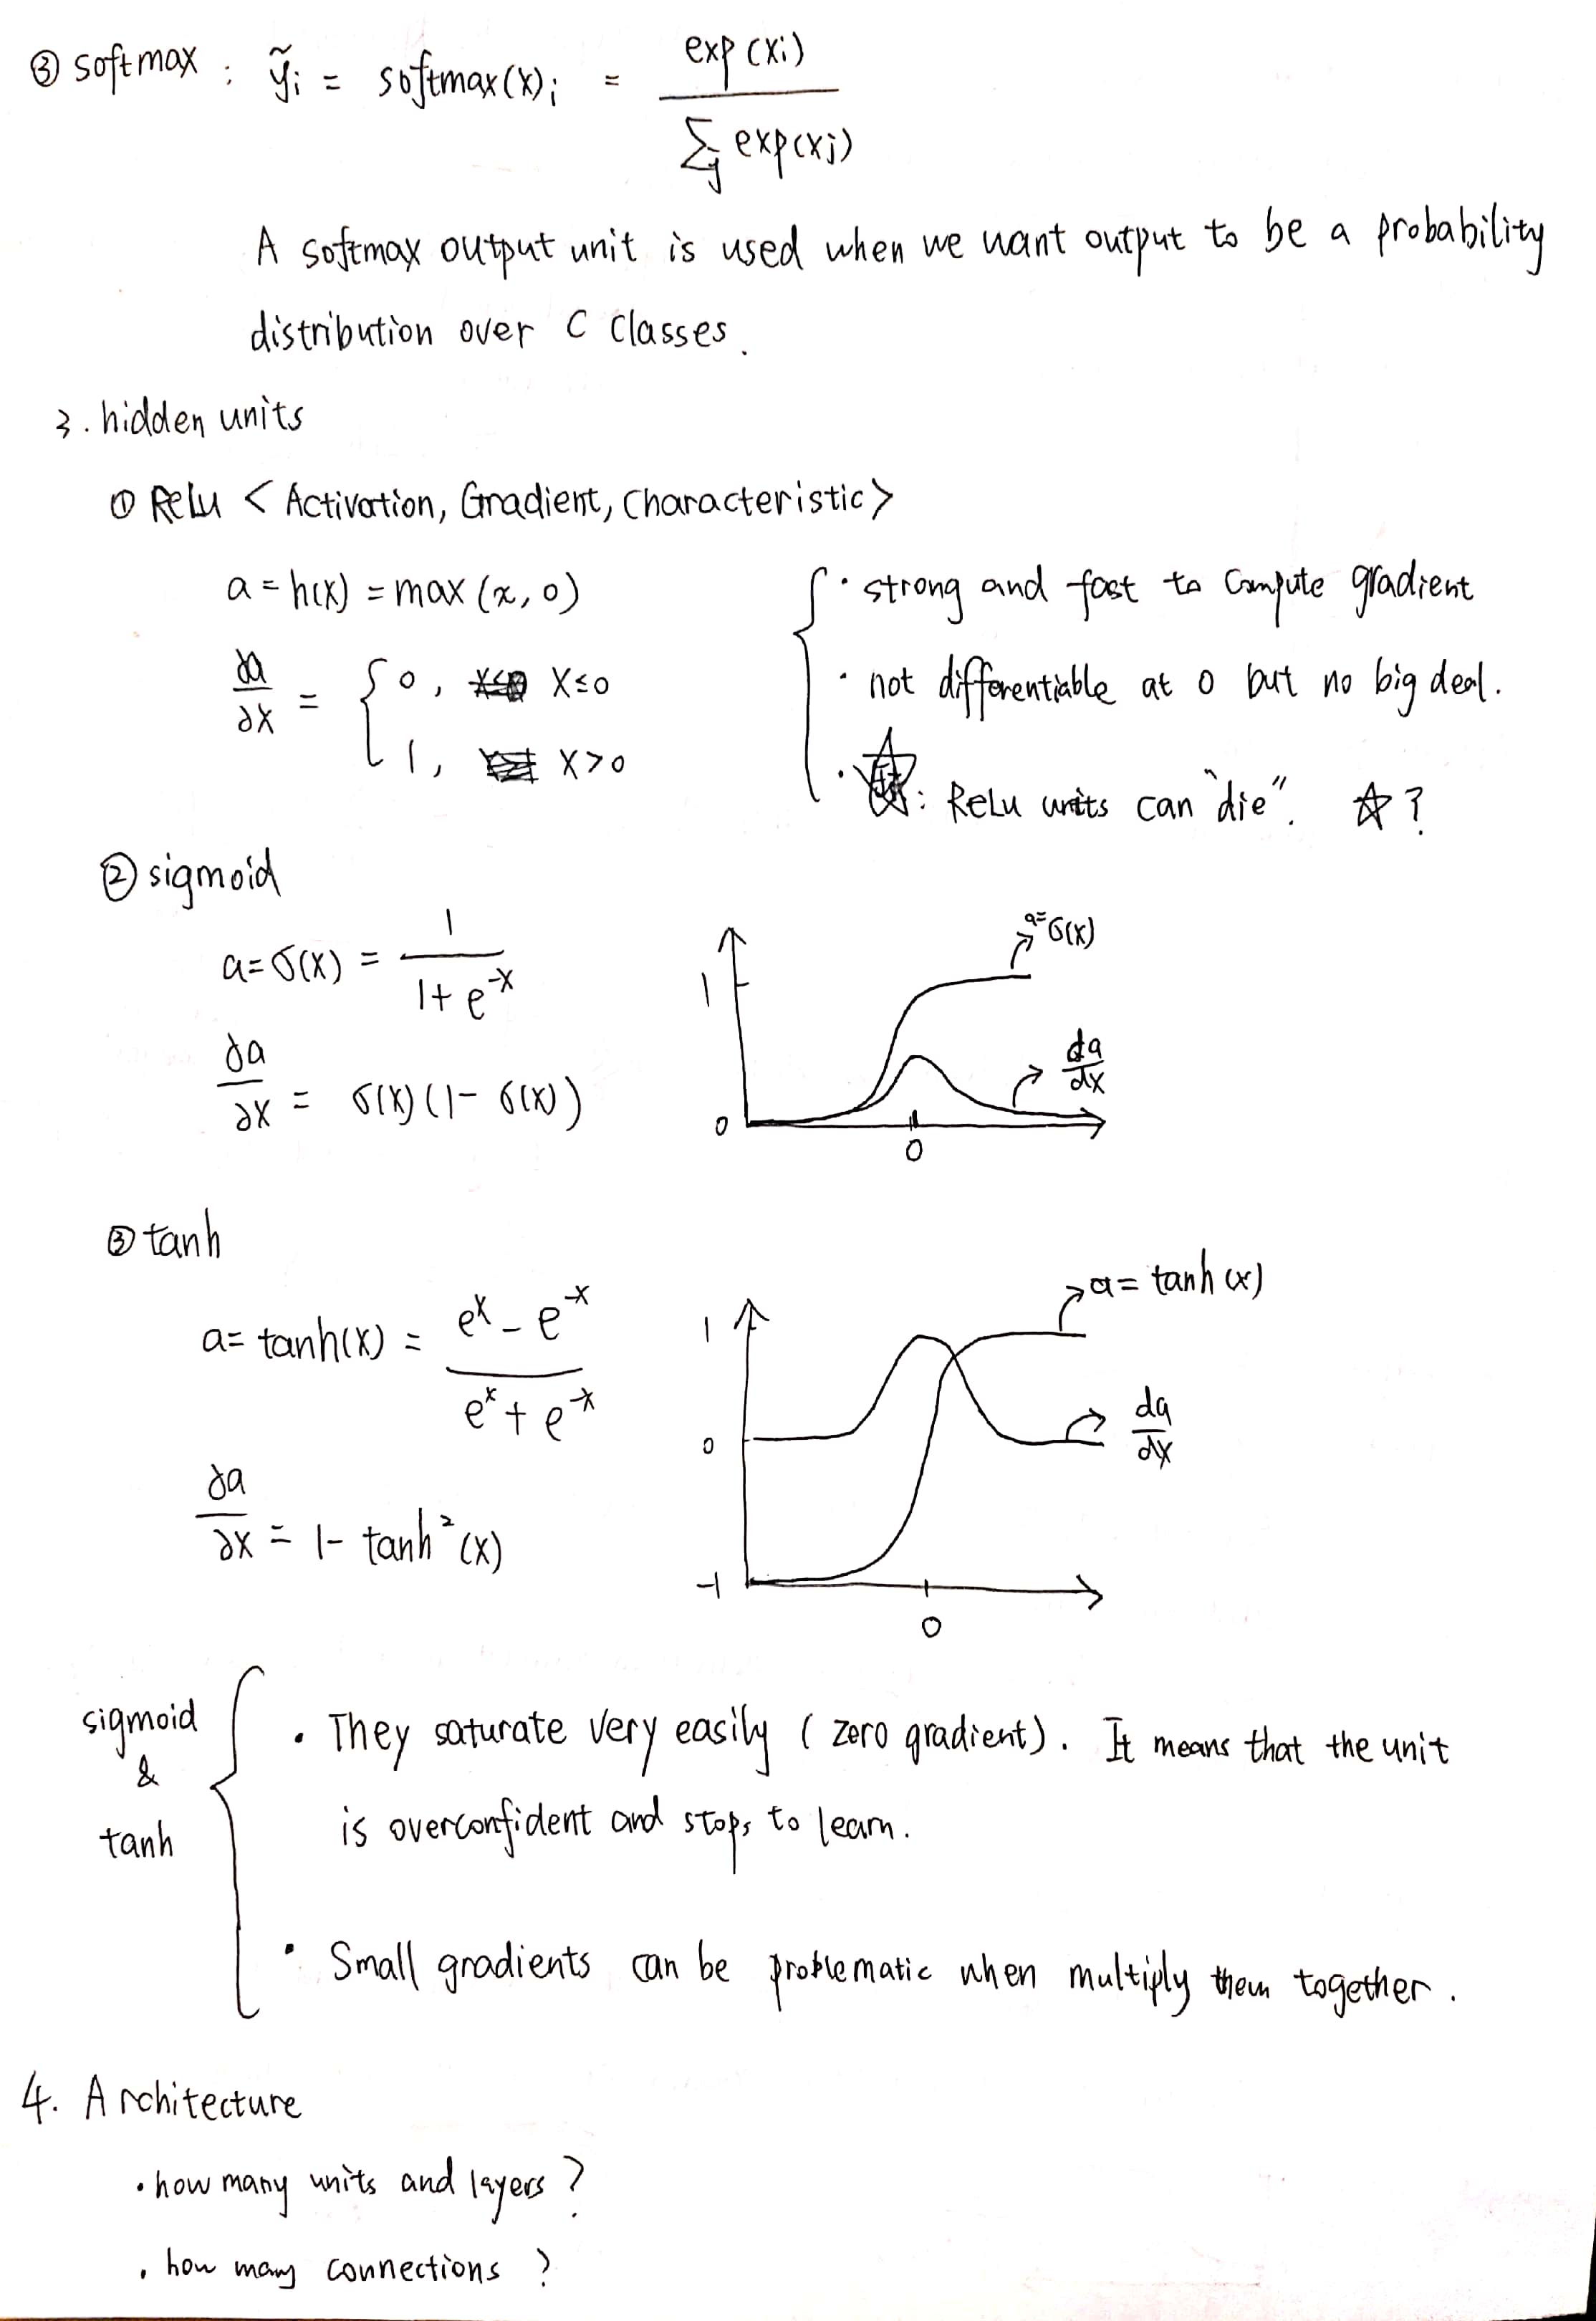 ③ softmax : ỹi = softmax(x)i = exp(xi) / Σj exp(xj)
A softmax output unit is used when we want output to be a probability
distribution over C classes.
3. hidden units
① Relu < Activation, Gradient, characteristic>
a = h(x) = max (x, 0)
∂a/∂x = { 0, x≤0
1, x>0
· strong and fast to compute gradient
· not differentiable at 0 but no big deal.
· ☆: ReLu units can "die". ☆?
② sigmoid
a = σ(x) = 1 / (1+e^-x)
∂a/∂x = σ(x)(1-σ(x))
a=σ(x)
1
da/dx
0
0
③ tanh
a = tanh(x) = (e^x - e^-x) / (e^x + e^-x)
∂a/∂x = 1- tanh²(x)
a = tanh(x)
1
0
da/dx
-1
0
sigmoid
&
tanh
· They saturate very easily (zero gradient). It means that the unit
is overconfident and stops to learn.
· Small gradients can be problematic when multiply them together.
4. Architecture
· how many units and layers?
· how many connections ?